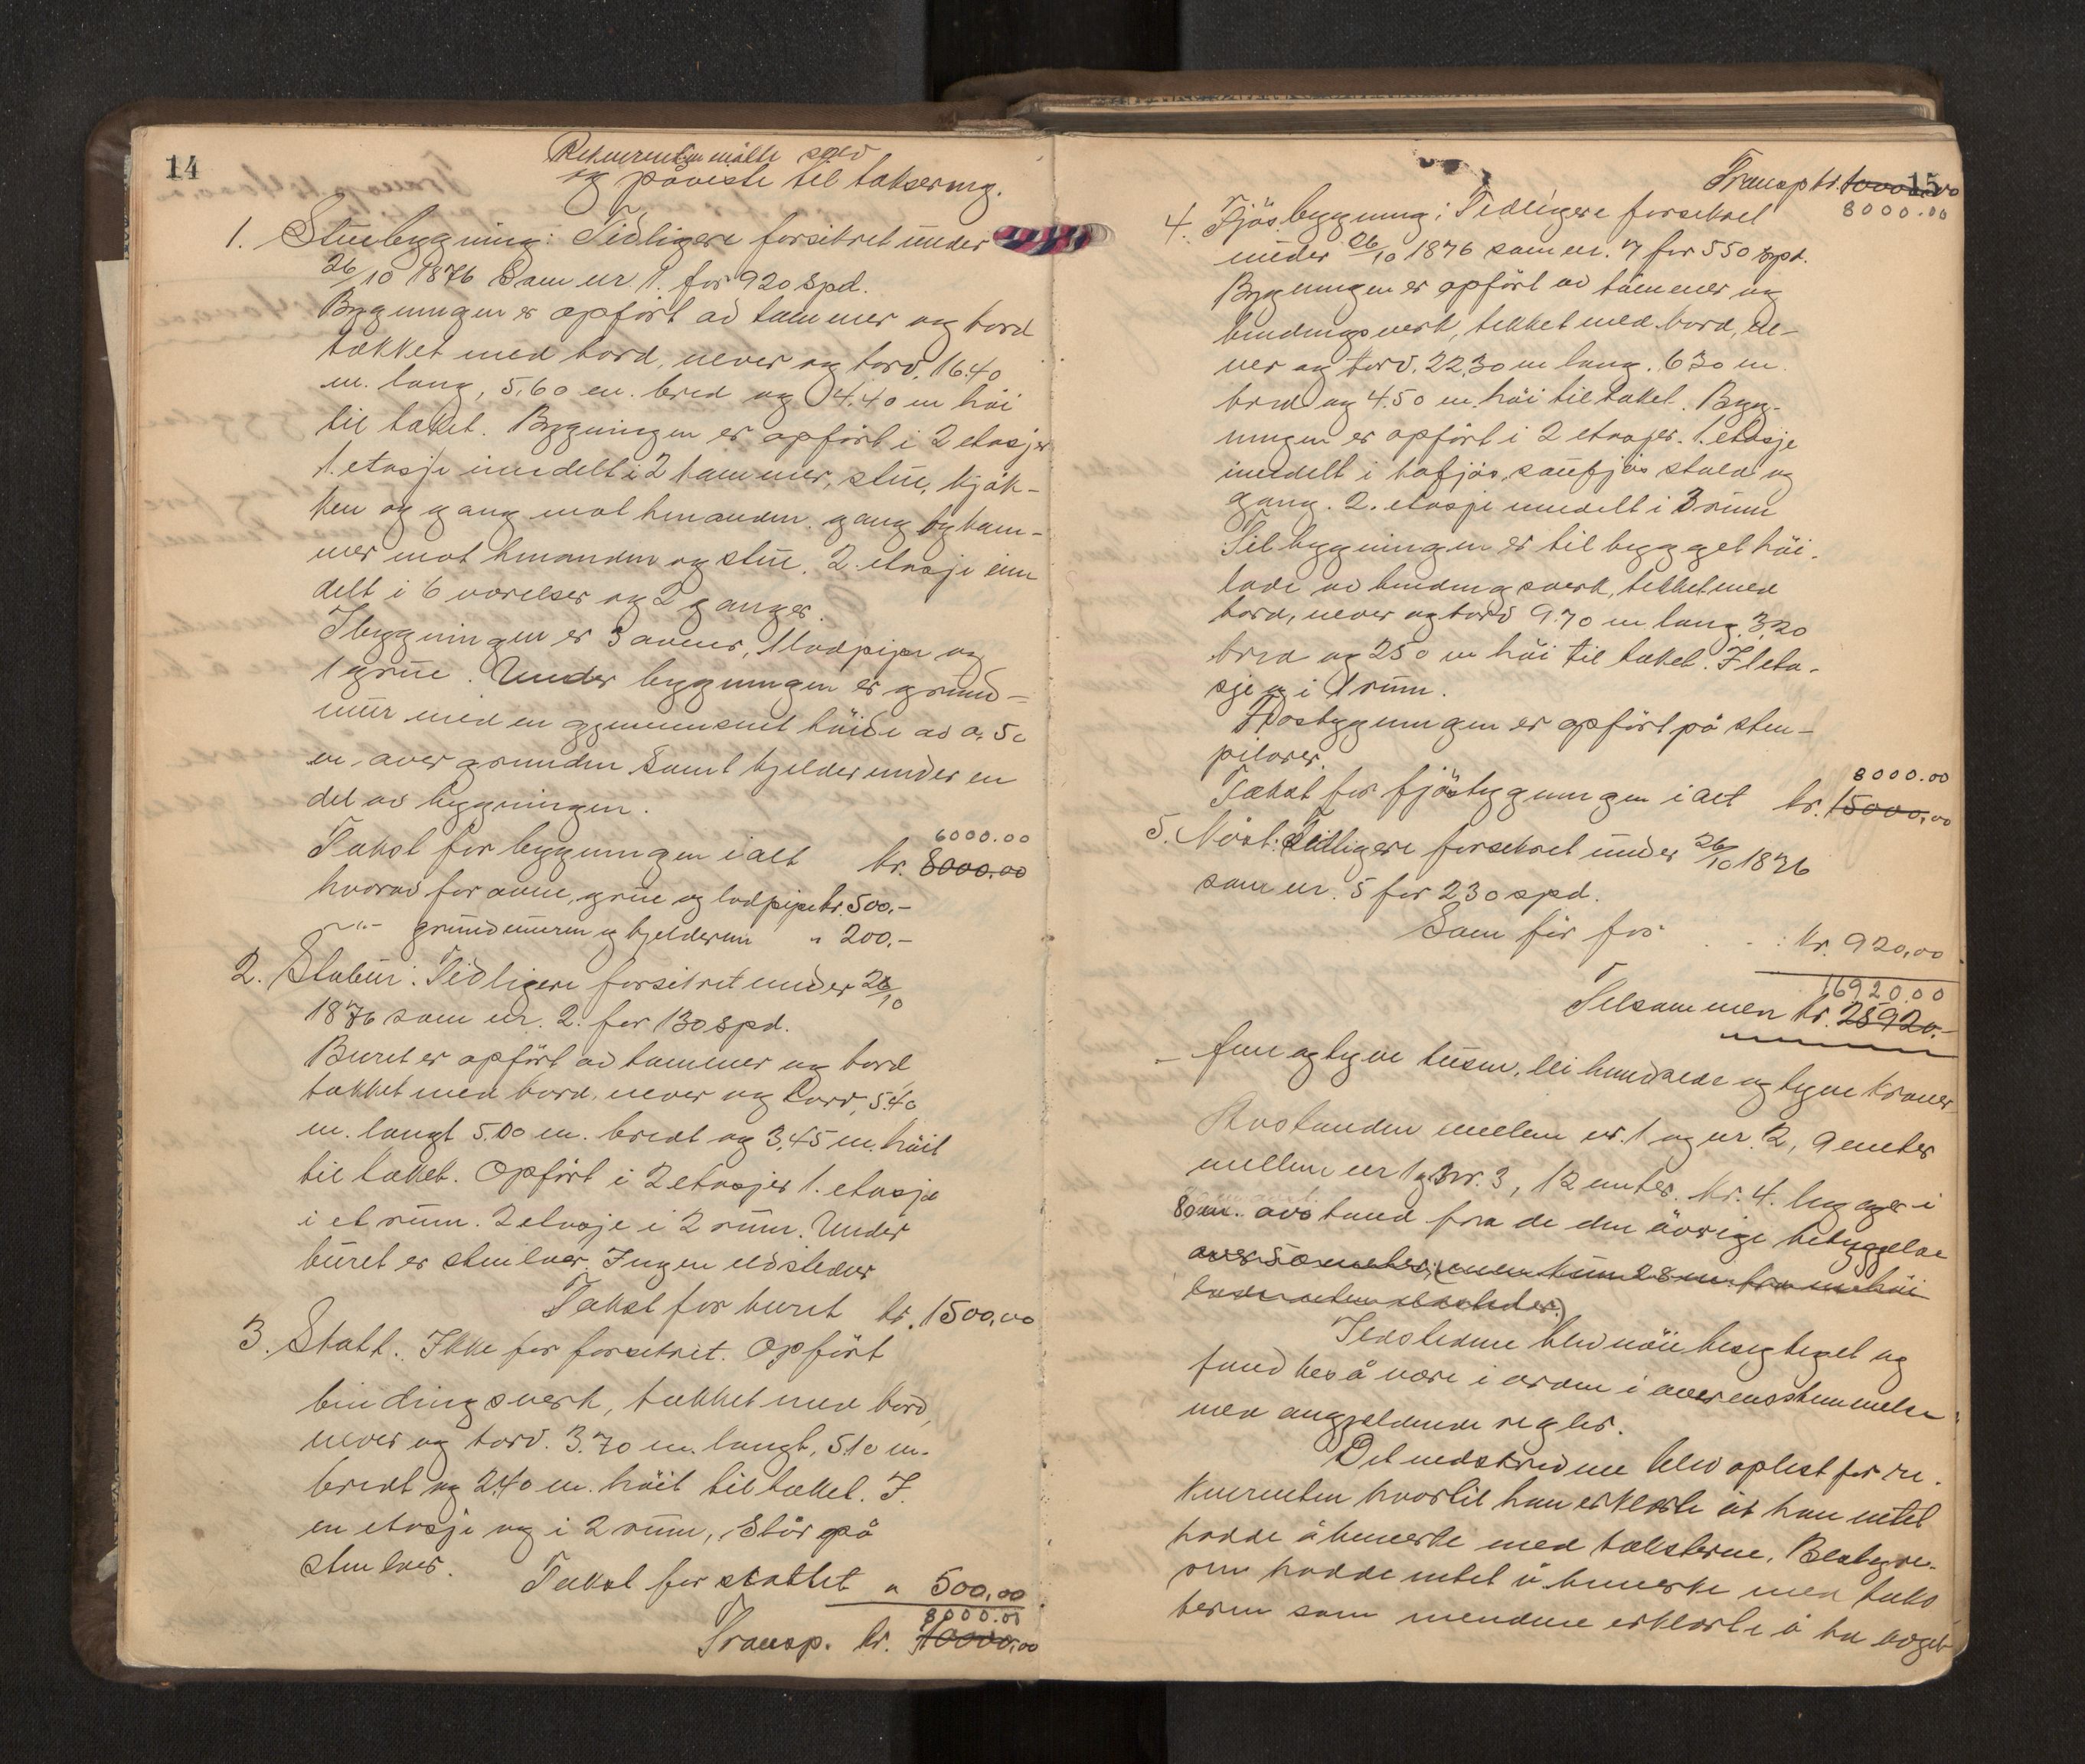 14
Rekvirenten møtte selv
og påviste til taksering.
1. Stuebygning: Tidligere forsikret under
26/10 1876 som nr 1. for 920 spd.
Bygningen er opført av tømmer og bord
tækket med bord, never og torv, 16.40
m. lang, 5,60 m. bred og 4.40 m høi
til taket. Bygningen er opført i 2 etasjer
1. etasje inndelt i 2 kammer, stue, kjøk-
ken og gang mot hinanden. gang og kam-
mer mot hinanden og stue. 2. etasje inn
delt i 6 værelser og 2 ganger.
I bygningen er 3 ovner, 1 lodpipe og
1 grue. Under bygningen er grund-
mur med en gjennemsnit høide av 0,50
m. over grunden samt kjelder under en
del av bygningen.
6000.00
Takst for bygningen ialt kr. 8000.00
hvorav for ovne, grue og lodpipe kr. 500.-
-"- grundmuren og kjelderen " 200.-
2. Stabur: Tidligere forsikret under 26/10
1876 som nr. 2. for 130 spd.
Buret er opført av tømmer og bord
tækket med bord, never og torv, 5.40
m. langt 5.00 m. bredt og 3,45 m. høit
til taket. Opført i 2 etasjer 1. etasje
i et rum. 2 etasje i 2 rum. Under
buret er stenlaer. Ingen ildsteder
Takst for buret kr. 1500,00
3. Stall. Ikke før forsikret. Opført
bindingsverk, tækket med bord,
never og torv. 3.70 m. langt, 5.10 m.
bredt og 2.40 m. høit til taket. I
en etasje og i 2 rum, Står på
stenlaer.
Takst for stallet " 500,00
8000.00
Transp. kr. 10000,00
15
Transp kr. 10000,00
8000.00
4. Fjøsbygning: Tidligere forsikret
under 26/10 1876 som nr. 7 for 550 spd.
Bygningen er opført av tømmer og
bindingsverk, tekket med bord, ne-
ver og torv. 22,30 m lang. 6 30 m
bred og 4.50 m. høi til taket. Byg-
ningen er opført i 2 etasjer. 1. etasje
inndelt i kofjøs, saufjøs stald og
gang. 2. etasje inndelt i 3 rum
Til bygningen er tilbygget høi-
lade av bindingsverk, tekket med
bord, never og torv 9.70 m lang, 3,20
bred og 2 50 m høi til taket. I 1 eta-
sje og i 1 rum.
Fjosbygningen er opført på sten-
pilarer.
8000.00
Takst for fjøsbygningen i alt kr. 15000,00
5. Nøst: Tidligere forsikret under 26/10 1876
som nr. 5 for 230 spd.
Som før for . . . kr. 920,00
16920.00
Tilsammen kr. 25920.-
- fem og tyve tusen, ni hundrede og tyve kroner
Avstanden mellem nr. 1 og nr. 2, 9 meter
mellem nr 1 og nr. 3, 12 meter. Nr. 4. ligger i
80 m. avstand fra de den øvrige bebyggelse
over 50 meter, (men kun 28 m. fra en høi
lade uten ildsteder.)
Ildstedene blev nøie besigtiget og
fund bes å være i orden i overensstemmelse
med angjeldende regler.
Det nedskrevne blev oplest for re-
kvirenten hvortil han erklærte at han intet
hadde å bemerke med taksterne. Bestyre-
ren hadde intet å bemerke med taks
terne som mendene erklærte å ha avgit